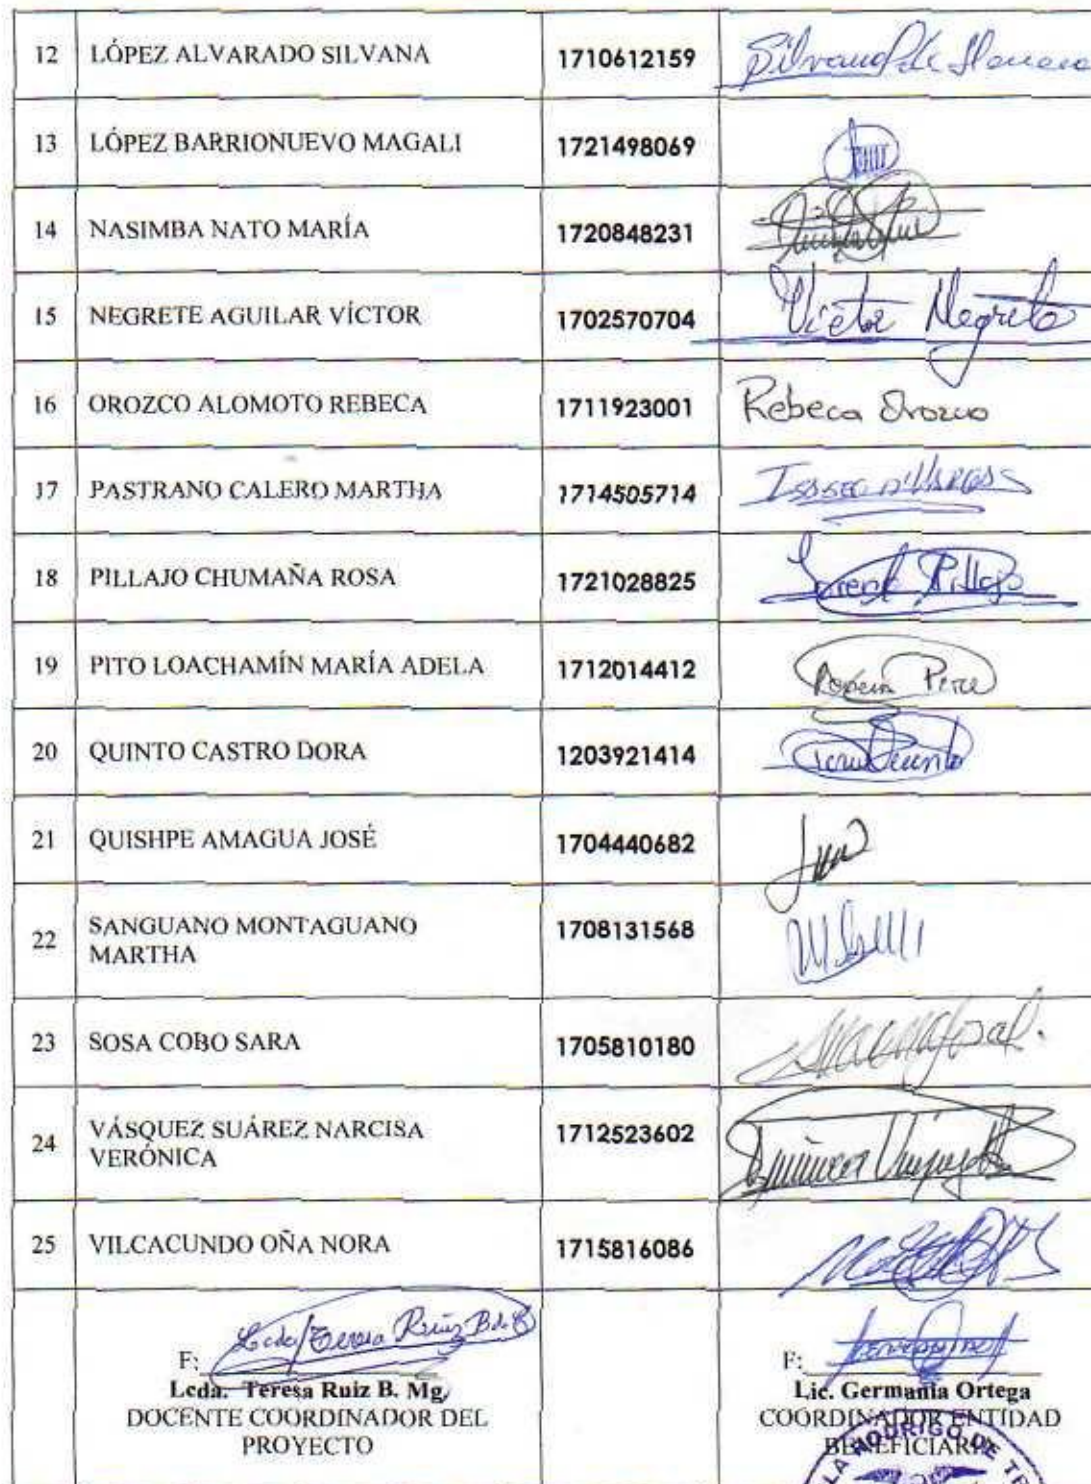 12 LÓPEZ ALVARADO SILVANA 1710612159 Silvana de
13 LÓPEZ BARRIONUEVO MAGALI 1721498069
14 NASIMBA NATO MARÍA 1720848231
15 NEGRETE AGUILAR VÍCTOR 1702570704 Víctor Negrete
16 OROZCO ALOMOTO REBECA 1711923001 Rebeca Orozco
17 PASTRANO CALERO MARTHA 1714505714
18 PILLAJO CHUMAÑA ROSA 1721028825 Pillajo
19 PITO LOACHAMÍN MARÍA ADELA 1712014412
20 QUINTO CASTRO DORA 1203921414
21 QUISHPE AMAGUA JOSÉ 1704440682
22 SANGUANO MONTAGUANO
MARTHA 1708131568
23 SOSA COBO SARA 1705810180
24 VÁSQUEZ SUÁREZ NARCISA
VERÓNICA 1712523602
25 VILCACUNDO OÑA NORA 1715816086
Lcda Teresa Ruiz B.
F:
Lcda. Teresa Ruiz B. Mg.
DOCENTE COORDINADOR DEL
PROYECTO
F:
Lic. Germania Ortega
COORDINADOR ENTIDAD
BENEFICIARIA
RODRIGO DE